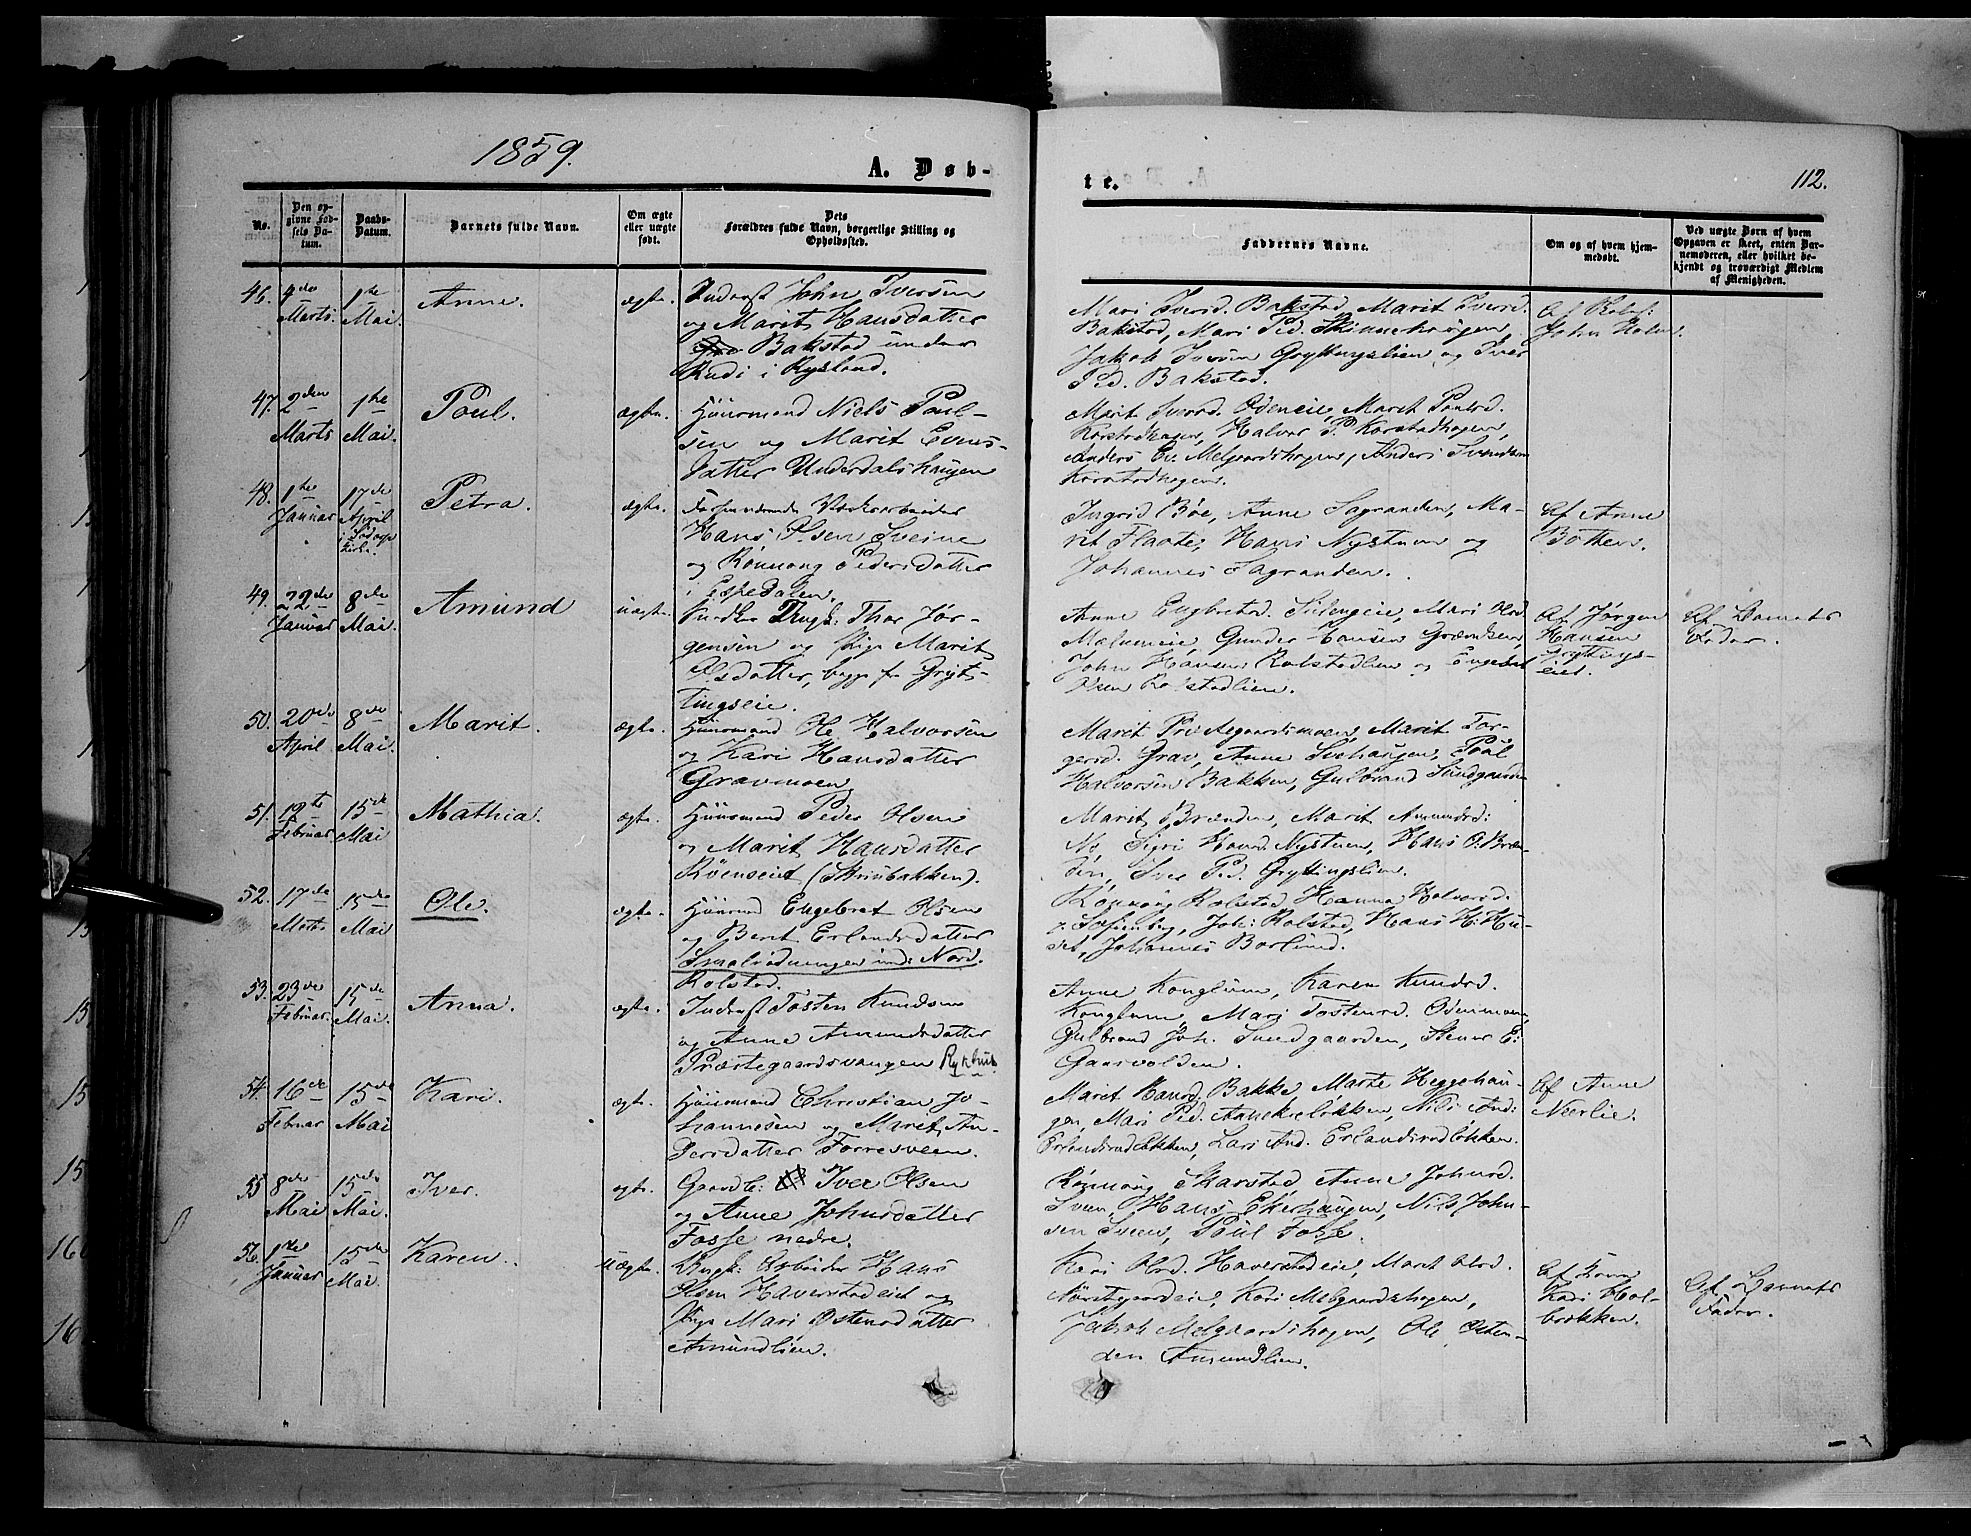 1859.
A. Døb-
te.
112.
No.
Den opgivne Fødsels Datum.
Daabs-Datum.
Barnets fulde Navn.
Om ægte eller uægte født.
Dets Forældres fulde Navn, borgerlige Stilling og Opholdssted.
Faddernes Navne.
Om og af hvem hjemmedøbt.
Ved uægte Børn af hvem Opgaven er skeet, enten Barnemoderen, eller hvilket bekjendt og troværdigt Medlem af Menigheden.
46. 4de Marts. 1ste Mai. Anne. ægte.
Inderst John Iversen
og Marit Hansdatter
Bakstad under
Rudi i Rysland.
Mari Iversd. Bakstad, Marit Iversd.
Bakstad, Mari Ped. Skinnerhaugen,
Jakob Gryttingslien og Iver
Ped. Bakstad.
Af
John
47. 2den Marts 1ste Mai. Poul. ægte.
Huusmand Niels Poul-
sen og Marit Evens-
datter Underdalshaugen
Marit Odeneie, Marit Poulsd.
Korstadhagen, Halvor P. Korstadhagen,
Anders Ev. Melgaardshagen, Anders Svendsen
Korstadhagen.
48. 1ste Januar 17de April i Sødorp Kirke. Petra. ægte.
Forhenværende Værksarbeider
Hans P.sen Sveine
og Rønnoug Pedersdatter
i Espedalen.
Ingrid Bøe, Anne Sagranden, Ma-
rit Flaate, Hans Nystuen og
Johannes Sagranden.
Af Anne
Botheus.
49. 22de Januar 8de Mai. Amund uægte.
Ungk. Thor Jør-
gensen og Pige Marit
Olsdatter, begge fr. Gryt-
tingseie.
Anne Engbretsd. Mari Olsd.
Malumeie, Gunder Hansen
John Hansen Rolstadlien og Engebret
Olsen Rolstadlien.
Af Jørgen
Hansen
Gryttings-
eiet.
Af Barnets
Fader.
50. 20de April 8de Mai. Marit. ægte.
Huusmand Ole Halvorsen
og Kari Hansdatter
Gravmoen
Marit Aegaardsmoen, Marit Tor-
gersd. Grav, Anne Svehaugen, Poul
Halvorsen Bakken, Gulbrand Sundgaarden
51. 12te Februar 15de Mai Mathia. ægte.
Huusmand Peder Olsen
og Marit Hansdatter
Røenseiet (Skrubakken).
Marit Brænden, Marit Amundsd:
No, Sigri Hansd. Nystuen, Hans O. Bræn-
den, Iver Ped. Gryttingslien.
52. 17de Marts 15de Mai Ole. ægte.
Huusmd Engebret Olsen
og Berit Erlandsdatter
Smalrødningen und: Nord.
Rolstad.
Rønnoug Rolstad, Hanna Halvorsd.
p. Sofienberg, Joh: Rolstad, Hans H: Hu-
set, Johannes Borlund.
53. 23de Februar. 15de Mai. Anna. ægte.
Inderst Tosten Knudsen
og Anne Amundsdatter
Præstegaardsvangen Rykhus
Anne Konglum, Karen Knudsd.
Konglum, Mari Tostensd. Odenmoen,
Gulbrand Joh. Sundgaarden, Stener E:
Gaarvolden.
54. 16de Februar 15de Mai Kari. ægte.
Huusmand Christian Jo-
hannesen og Marit An-
dersdatter Forresveen.
Marit Hansd. Bakke, Marte Heggehau-
gen, Mari Ped. Annekeløkken, Nils And:
Erlandsrudløkken, Lars And. Erlandsrudløkken.
Af Anne
Nærlie.
55 8de Mai 15de Mai. Iver. ægte.
Gaardb: Iver Olsen
og Anne Johnsdatter
Fosse nedre.
Rønnoug Skarstad, Anne Johnsd.
Sveen, Hans Ekerhaugen, Nils John-
sen Sveen, Poul Fosse.
56. 1ste Januar 15de Mai. Karen. uægte.
Ungk: Arbeider Hans
Olsen Haverstadeiet og
Pige Mari Østensdatter
Amundlien.
Kari Olsd. Haverstadeie, Marit Olsd.
Nørstegaardeie, Kari Melgaardshagen,
Jakob Melgaardshagen, Ole Østen-
den Amundlien.
Af Kone
Kari Hol-
brækken.
Af Barnets
Fader.